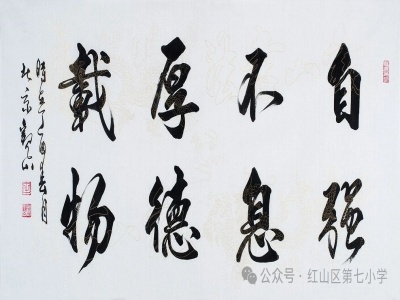 自强
不息
厚德
載物
時在丁酉春月
北京
公众号·红山区第七小学